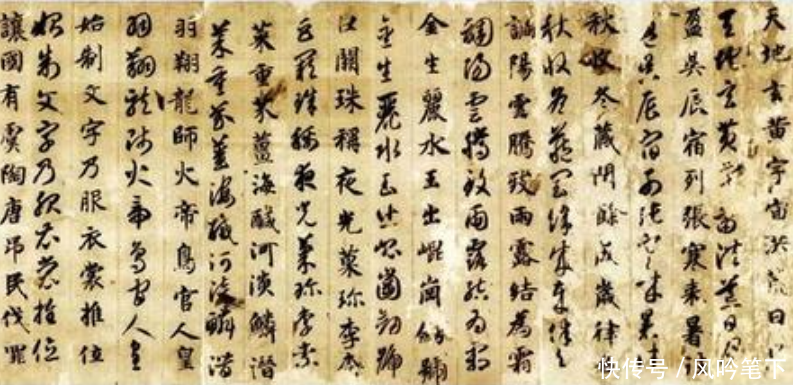 天地玄黄宇宙洪荒日月
天地玄黄宇宙洪荒日月
盈昃辰宿列張寒来暑
盈昃辰宿列張寒来暑
秋收冬藏閏餘成歲律
秋收冬藏閏餘成歲律
調陽雲騰致雨露結為霜
調陽雲騰致雨露結為霜
金生麗水玉出崐崗劒號
金生麗水玉出崐崗劒號
巨闕珠稱夜光菓珍李柰
巨闕珠稱夜光菓珍李柰
菜重芥薑海醎河淡鱗潛
菜重芥薑海醎河淡鱗潛
羽翔龍師火帝鳥官人皇
羽翔龍師火帝鳥官人皇
始制文字乃服衣裳推位
始制文字乃服衣裳推位
讓國有虞陶唐弔民伐罪
快传号 / 风吟笔下